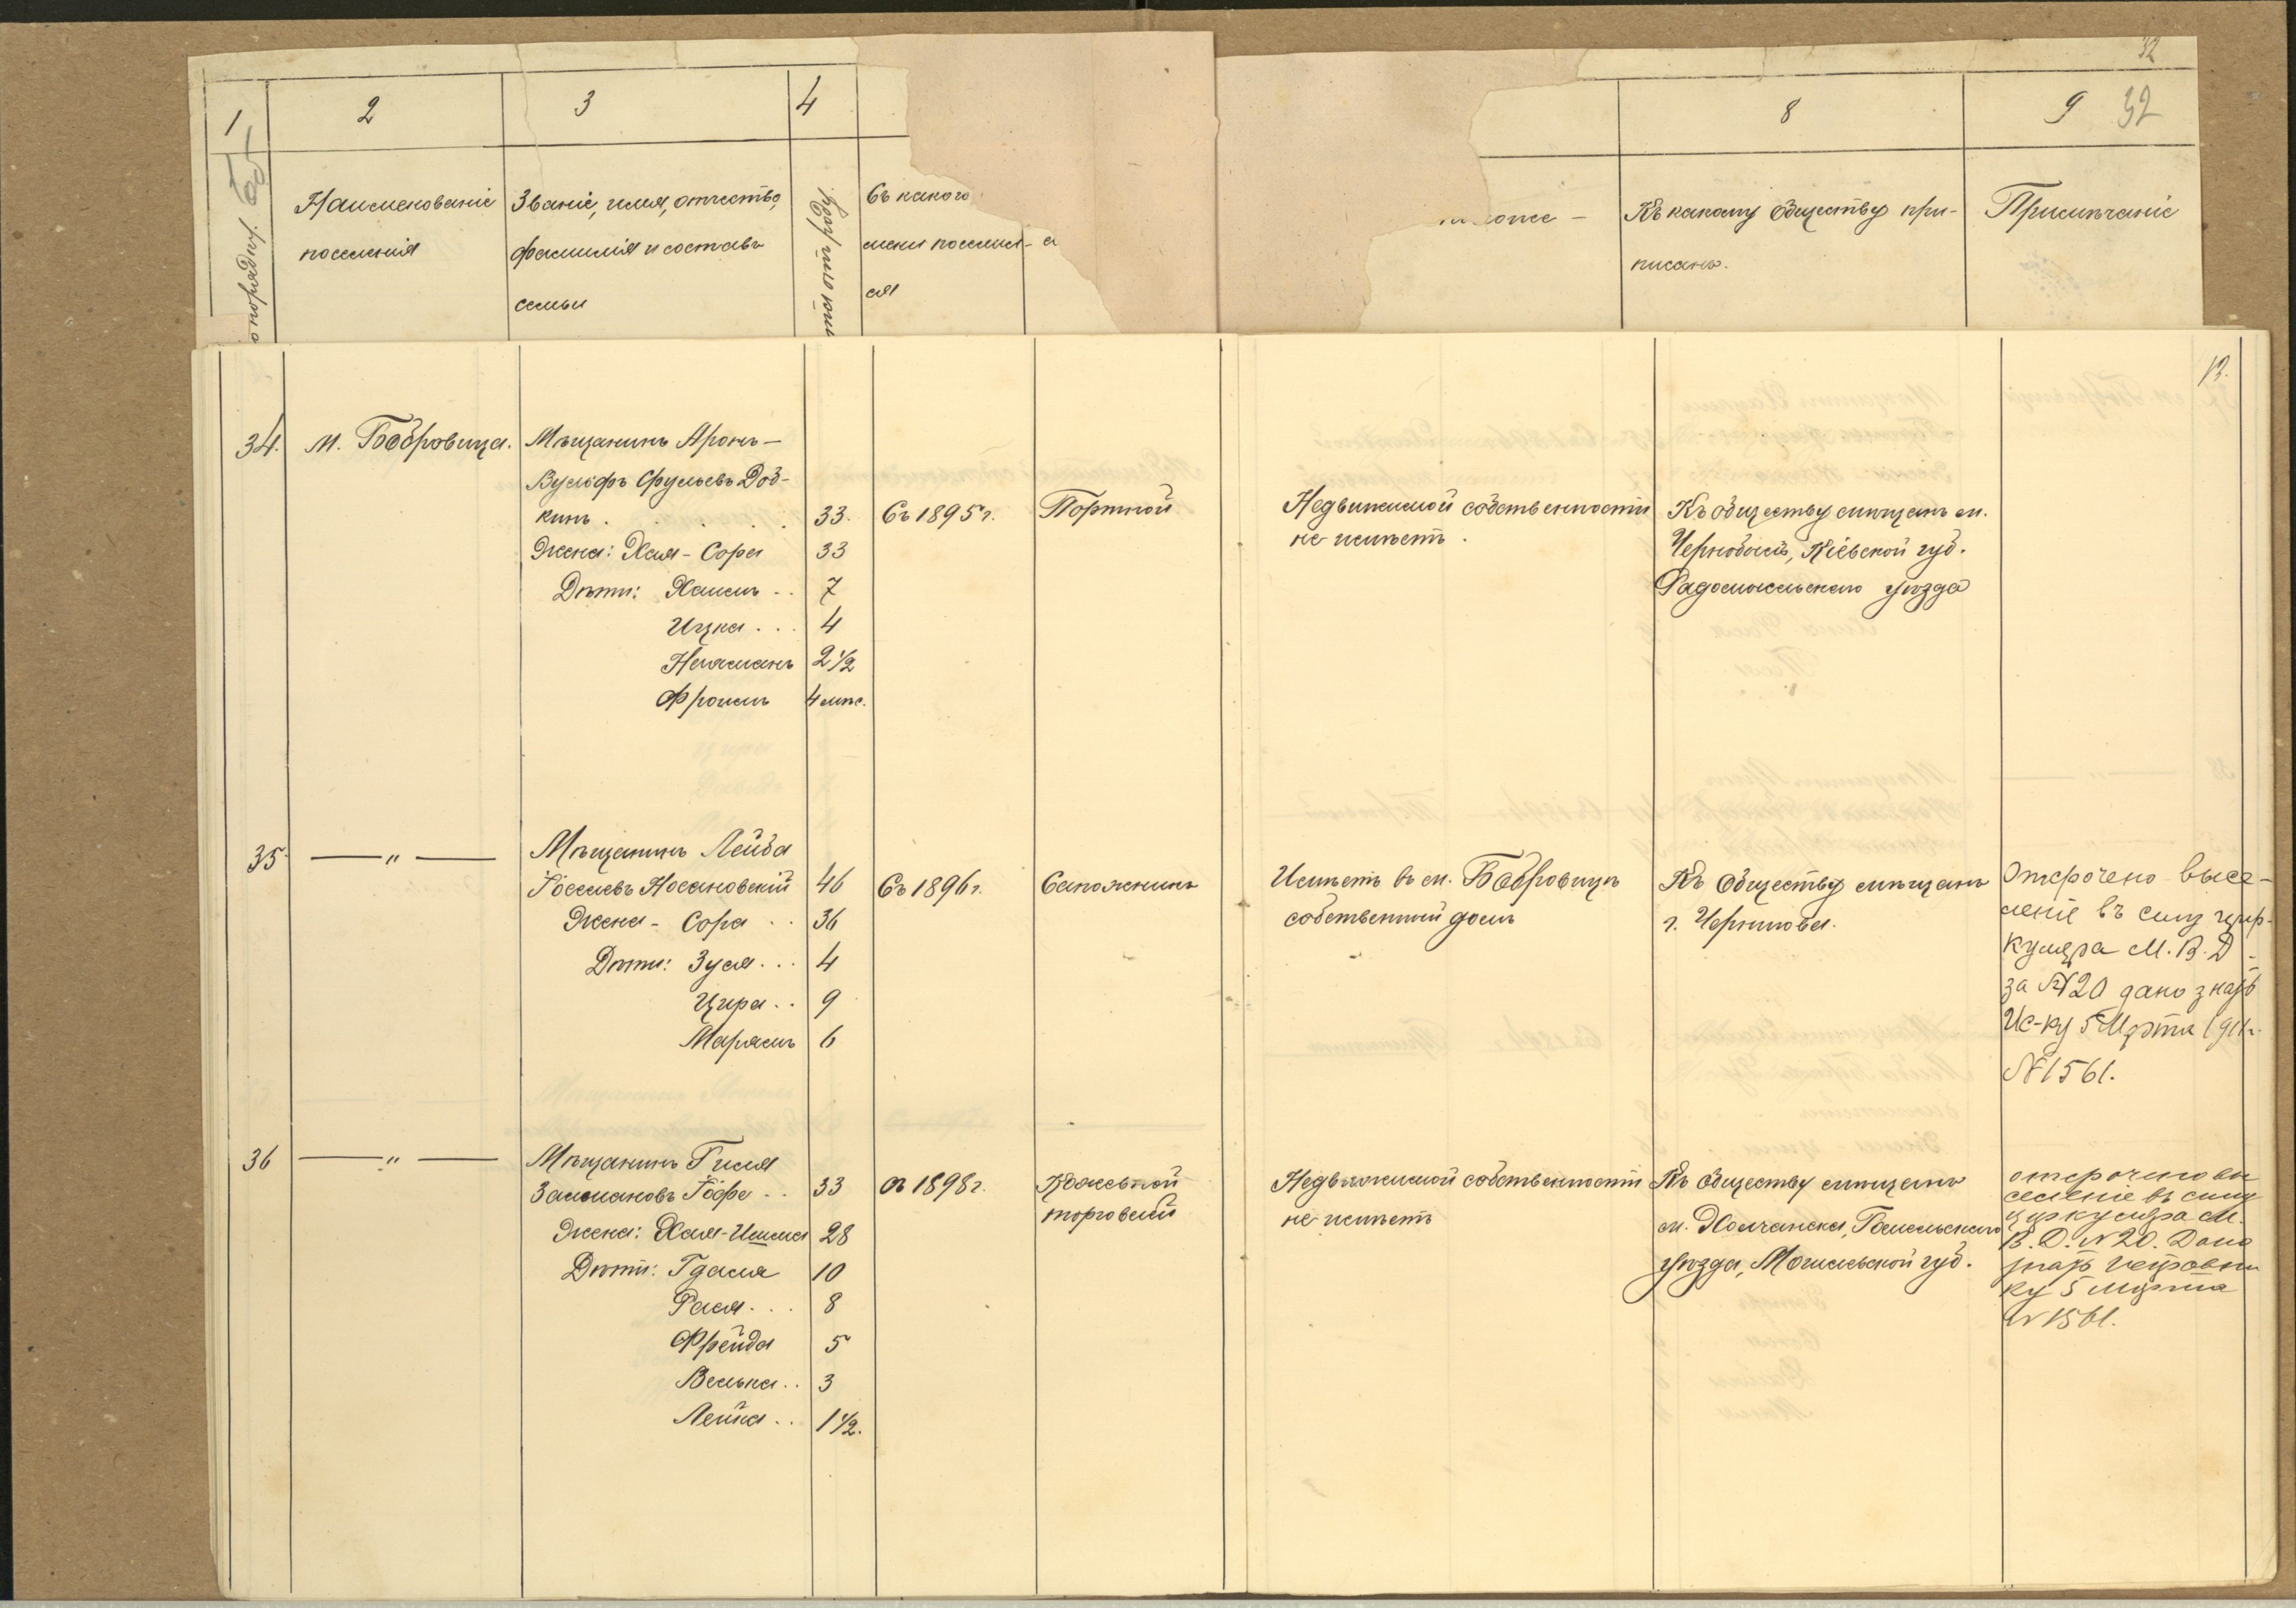 32
1
2
3
4
8
9 32
Наименованіе
поселенія
Званіе, имя, отчество,
фамилія и составъ
семьи
Съ какого
ся
Къ какому обществу при-
писанъ.
Примѣчаніе
13.
34. м. Бобровица. Мѣщанинъ Аронъ-
Вульфъ Срульевъ Доб-
кинъ . . . . 33. Съ 1895 г. Портной Недвижимой собственности Къ обществу мѣщанъ м.
Жена: Хая-Сора 33 не имѣетъ. Чернобыль, Кіевской губ.
Дѣти: Хаимъ .. 7 Радомысльскаго уѣзда
Ицка ... 4
Нехаманъ 2½
Фроимъ 4 мѣс.
35 —"— Мѣщанинъ Лейба
Іосевъ Носановскій 46 Съ 1896 г. Сапожникъ Имѣетъ въ м. Бобровицѣ Къ обществу мѣщанъ
Жена - Сора .. 36 собственный домъ г. Чернигова.
Дѣти: Зуся ... 4
Цира .. 9
Марьямъ 6
Отсрочено высе-
леніе въ силу цир-
куляра М. В. Д.
за № 20 дано знать
Ис-ку 5 Марта 1911 г.
№ 1561.
36 —"— Мѣщанинъ Гиля
Залмановъ Іоффе .. 33 съ 1898 г. торговецъ Недвижимой собственности Къ обществу мѣщанъ
Жена: Хая- 28 не имѣетъ м. Холчанска, Гомельскаго
Дѣти: Гдаля 10 уѣзда, Могилевской губ.
Рася ... 8
Фрейда 5
Велька .. 3
Лейка .. 1½.
отсрочено вы
селеніе въ силу
циркуляра М.
В. Д. № 20. Дано
знать исправни
ку 5 Марта
№ 1561.